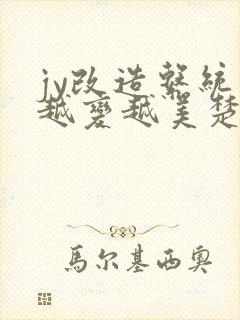 jy改造系統
越變越美楚
馬尔基西奧